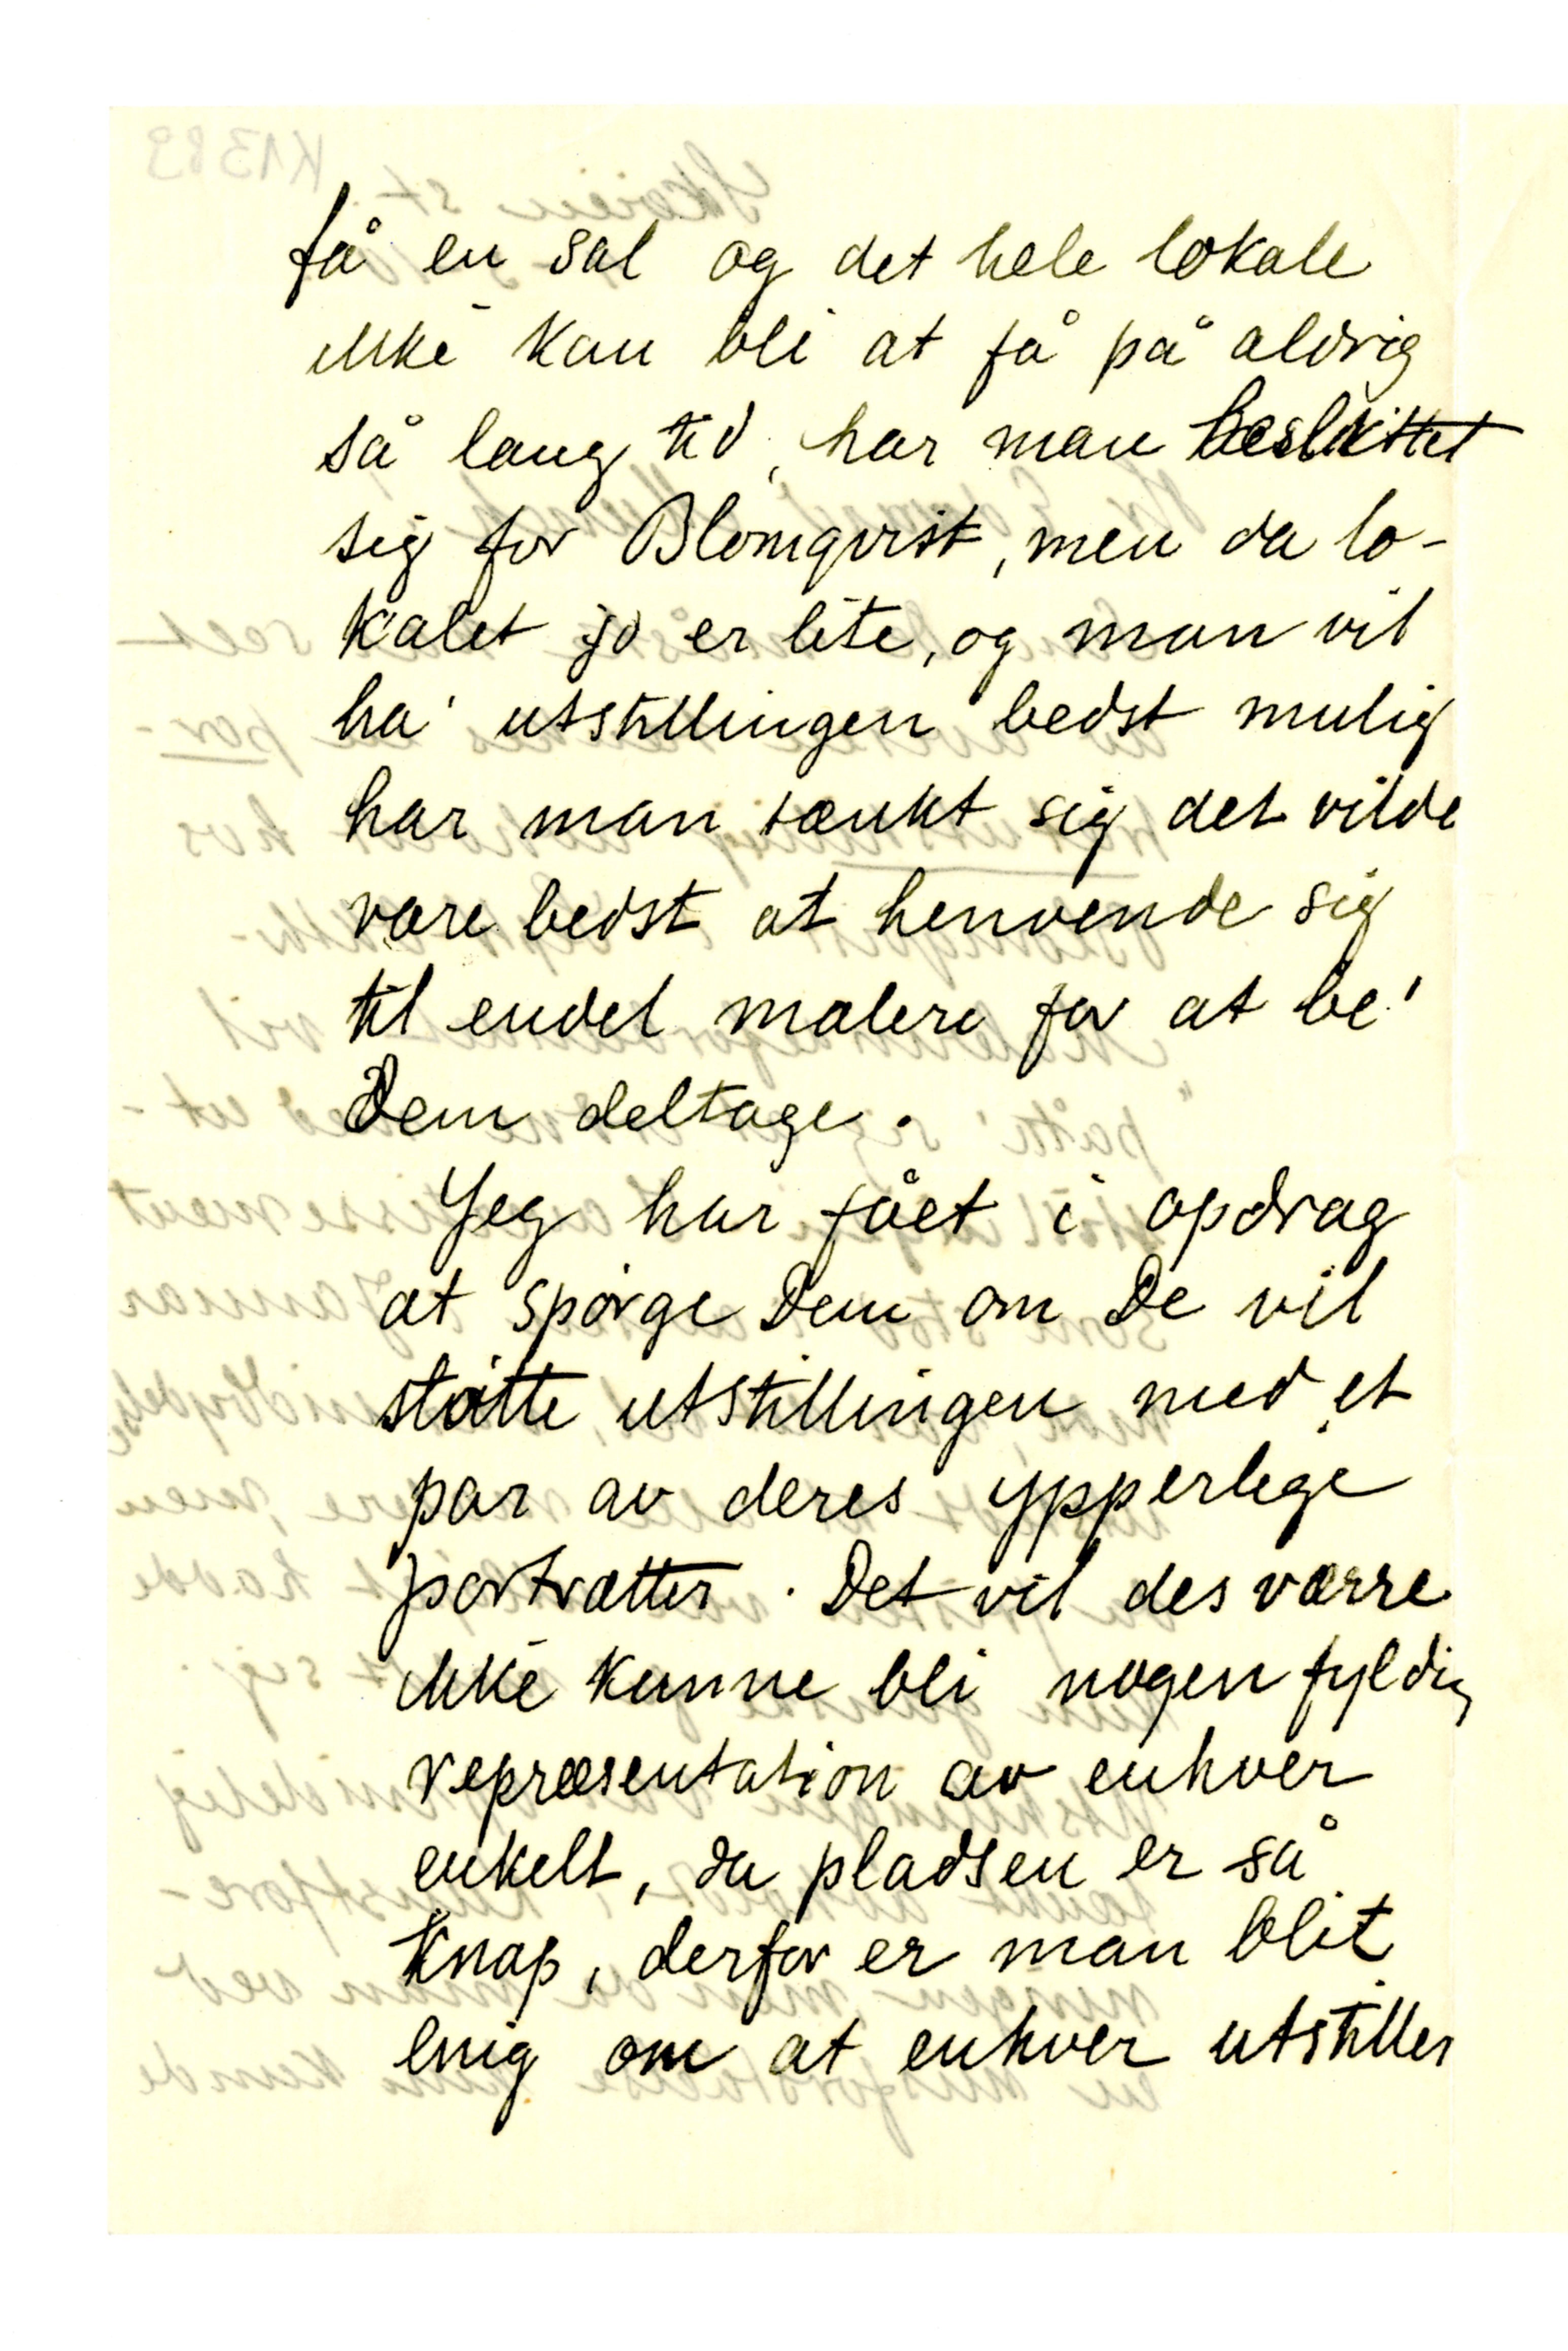 få en sal og det hele lokale
ikke kan bli at få på aldrig
så lang tid, har man besluttet
sig for Blomqvist, men da lo-
kalet jo er lite, og man vil
ha' utstillingen bedst mulig
har man tænkt sig det vilde
være bedst at henvende sig
til endel malere for at be'
Dem deltage.
Jeg har fået i opdrag
at spørge Dem om De vil
støtte utstillingen med et
par av deres ypperlige
portrætter. Det vil desværre
ikke kunne bli nogen fyldig
repræsentation av enhver
enkelt, da pladsen er så
knap, derfor er man blit
enig om at enhver utstiller